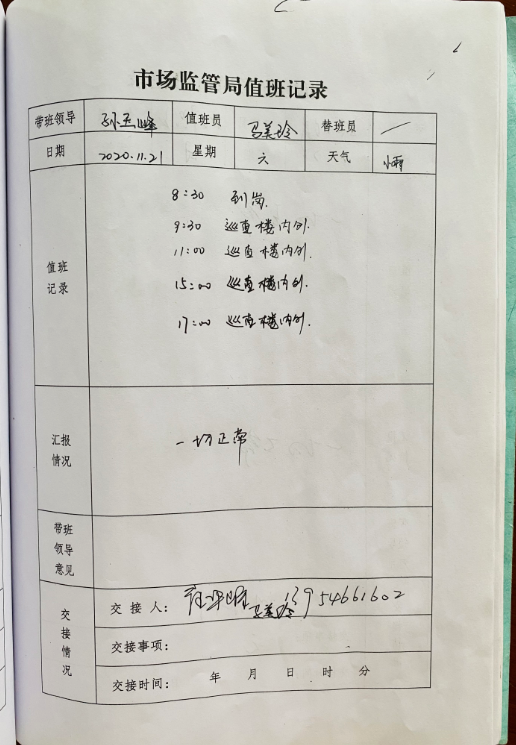 市场监管局值班记录
带班领导 孙玉峰 值班员 马美玲 替班员 /
日期 2020.11.21 星期 六 天气 小雨
值班记录
8:30 到岗.
9:30 巡查楼内外.
11:00 巡查楼内外.
15:00 巡查楼内外.
17:00 巡查楼内外.
汇报情况
一切正常
带班领导意见
交接情况
交接人: 马美玲 13954661602
交接事项:
交接时间: 年 月 日 时 分